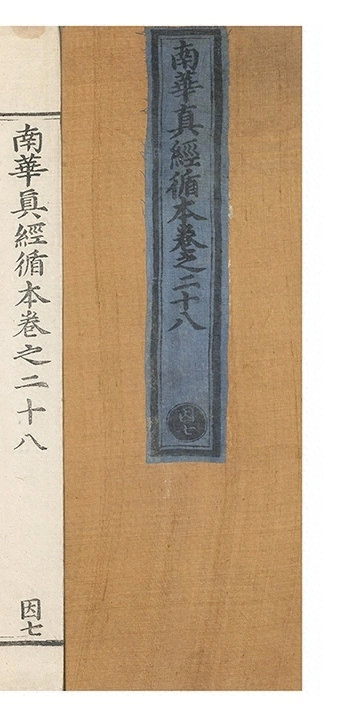 南華真經循本卷之二十八
因七
南華眞經循本卷之二十八
因七